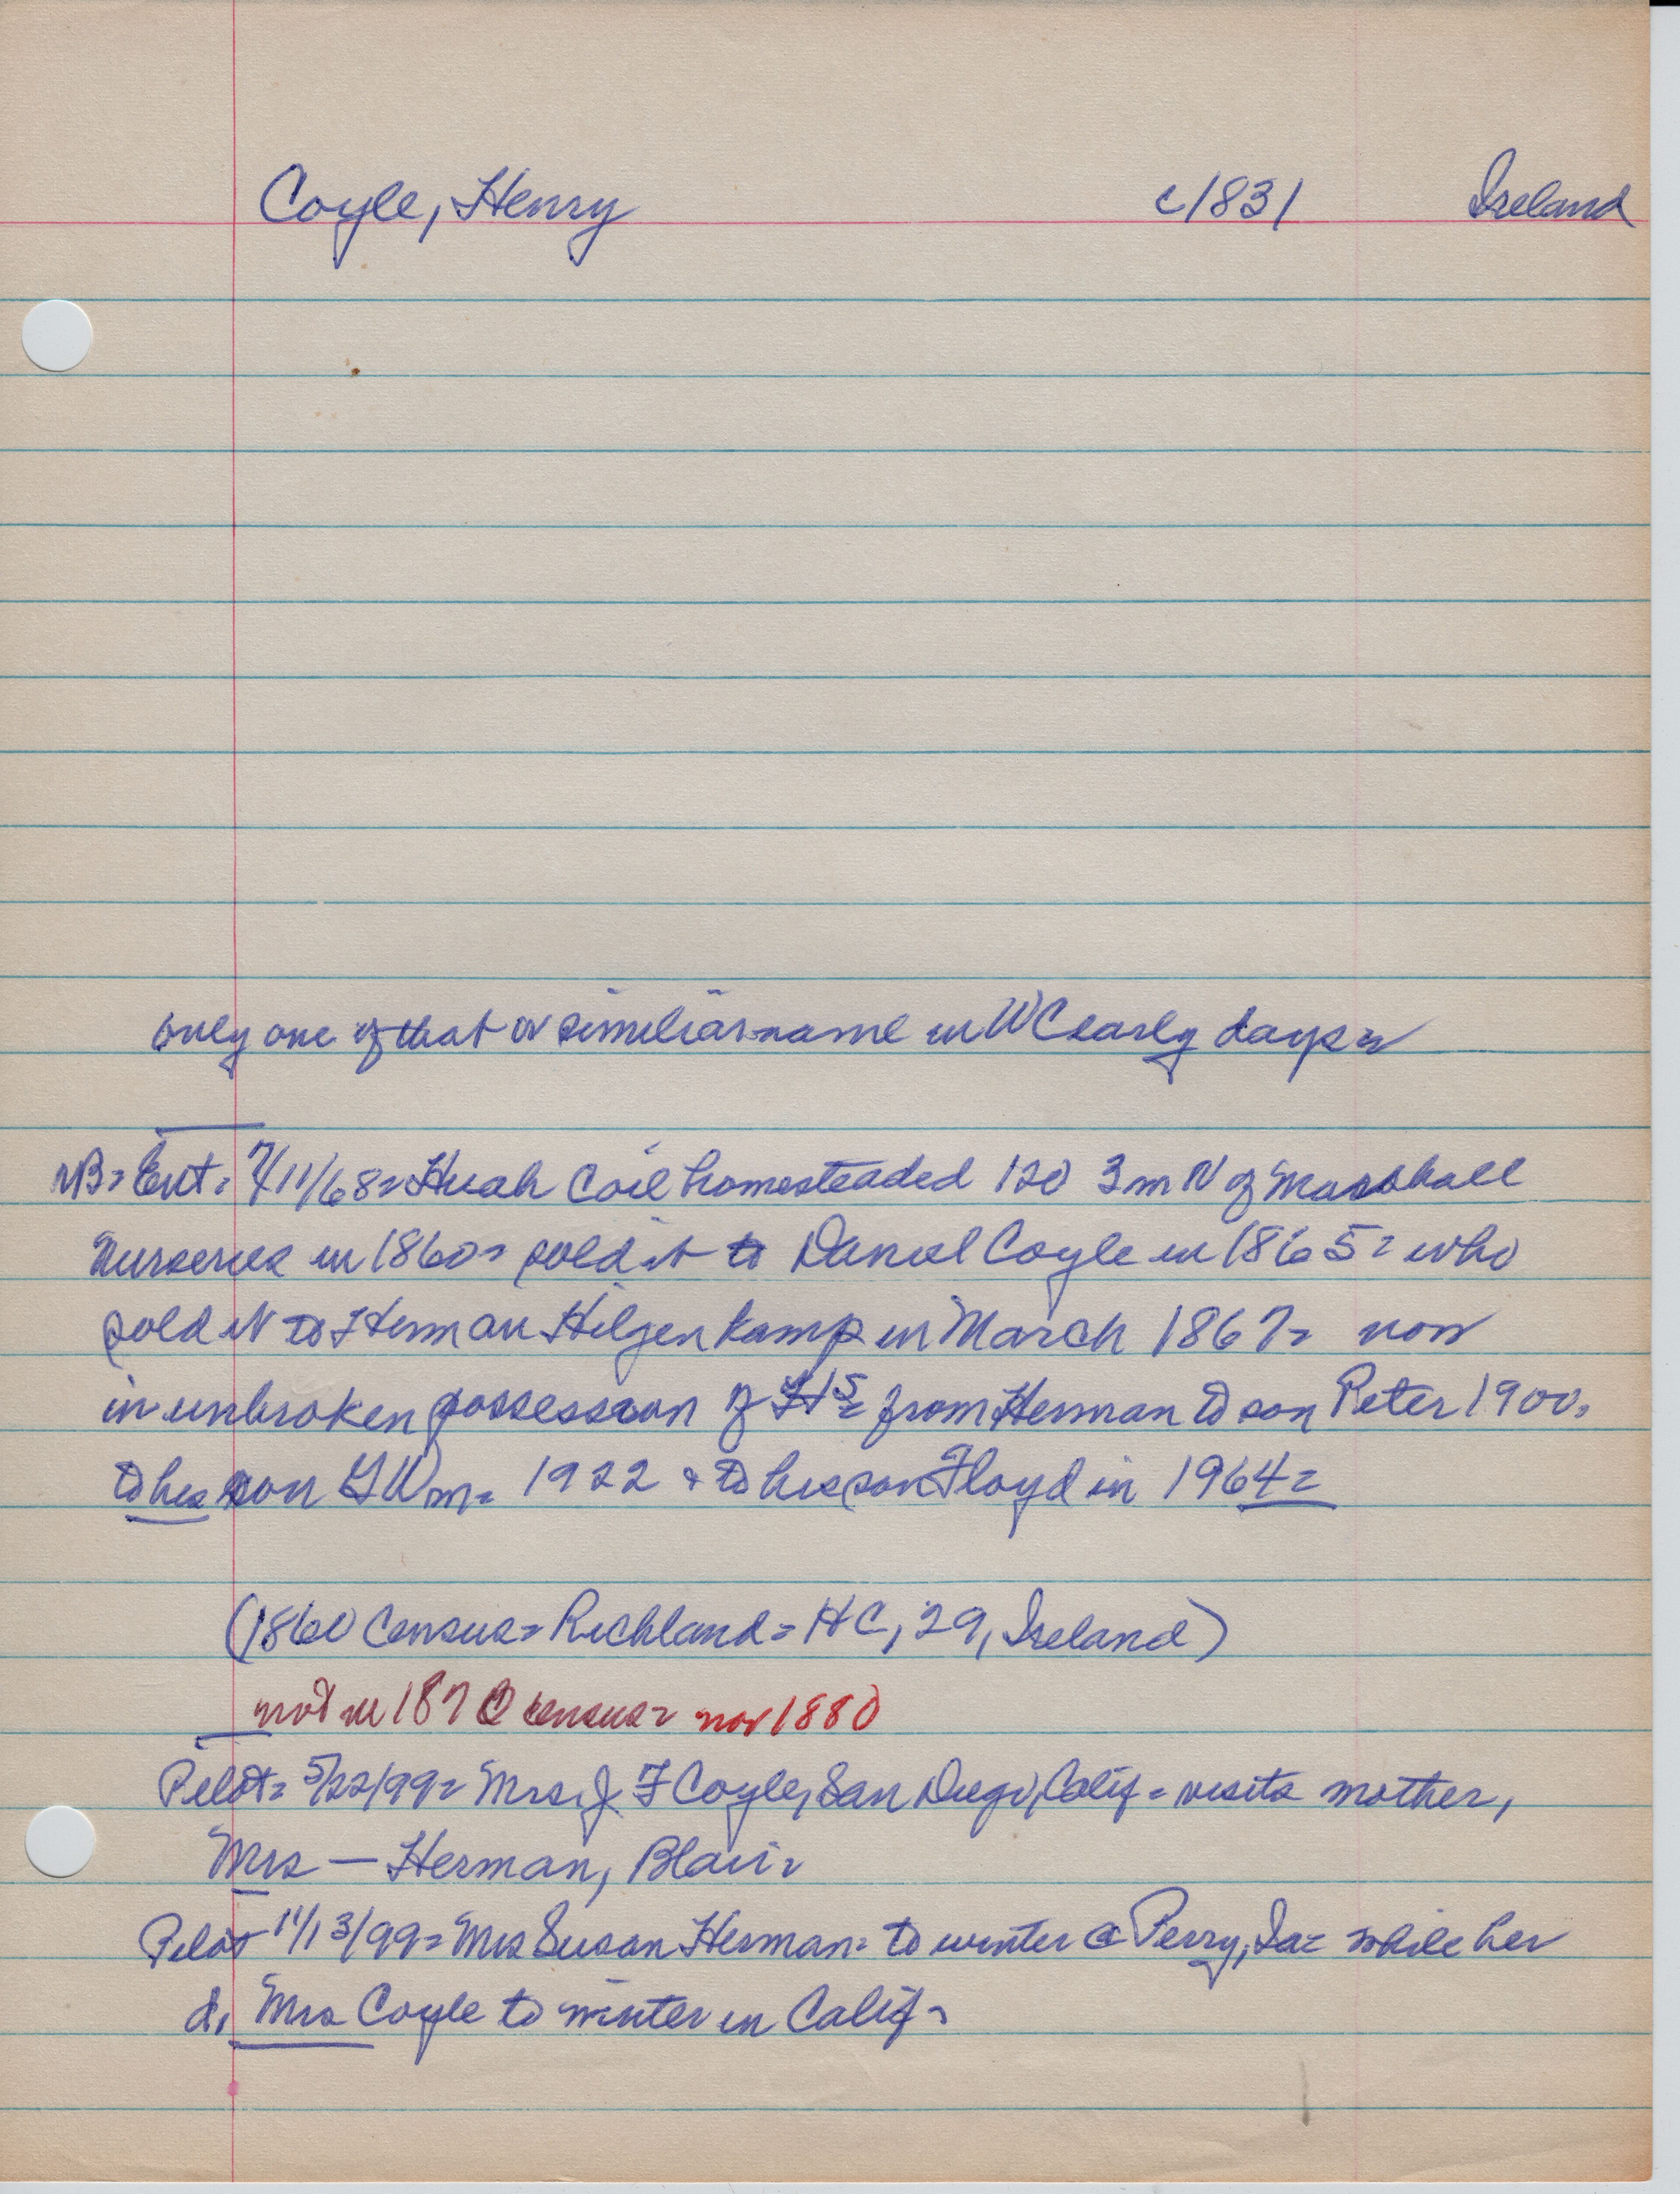 Coyle, Henry c1831 Ireland
only one of that or similiar name in WC early days =
NB = Ent = 7/11/68 = Huah Coil homesteaded 120 3 m N of Marshall
Nurseries in 1860 = sold it to Daniel Coyle in 1865 = who
sold it to Herman Hilgenkamp in March 1867 = now
in unbroken possession of Hs = from Herman to son Peter 1900,
to his son G Wm = 1922 & to his son Floyd in 1964 =
(1860 Census = Richland = HC, 29, Ireland)
not in 1870 census = nor 1880
Pilot = 5/22/99 = Mrs. J F Coyle, San Diego, Calif = visits mother,
Mrs — Herman, Blair =
Pilot 11/13/99 = Mrs Susan Herman = to winter @ Perry, Ia = while her
d, Mrs Coyle to winter in Calif =